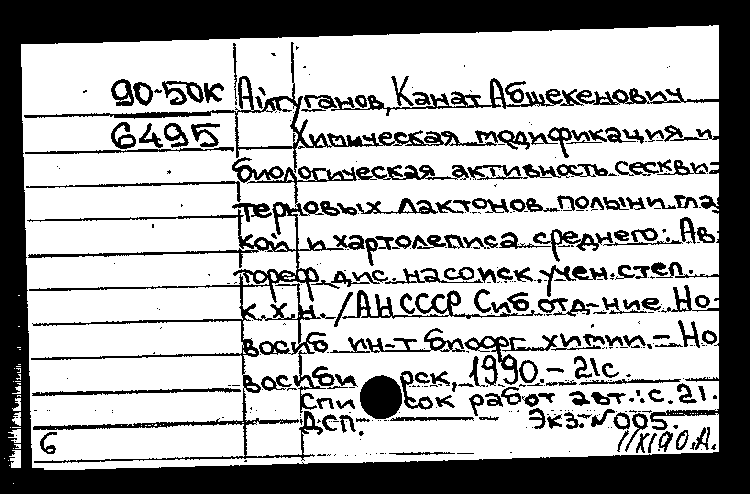 90-50К Айтуганов, Канат Абшекенович
6495 Химическая модификация и
биологическая активность сескви-
терновых лактонов полыни глад
кой и хартолеписа среднего: Ав-
тореф. дис. на соиск. учен. степ.
к.х.н. /АН СССР. Сиб. отд-ние. Но-
восиб. ин-т биоорг. химии. - Но
восибирск, 1990. - 21с.
Список работ авт.: с. 21.
ДСП. Экз. №005.
6 11/XI 90.А.